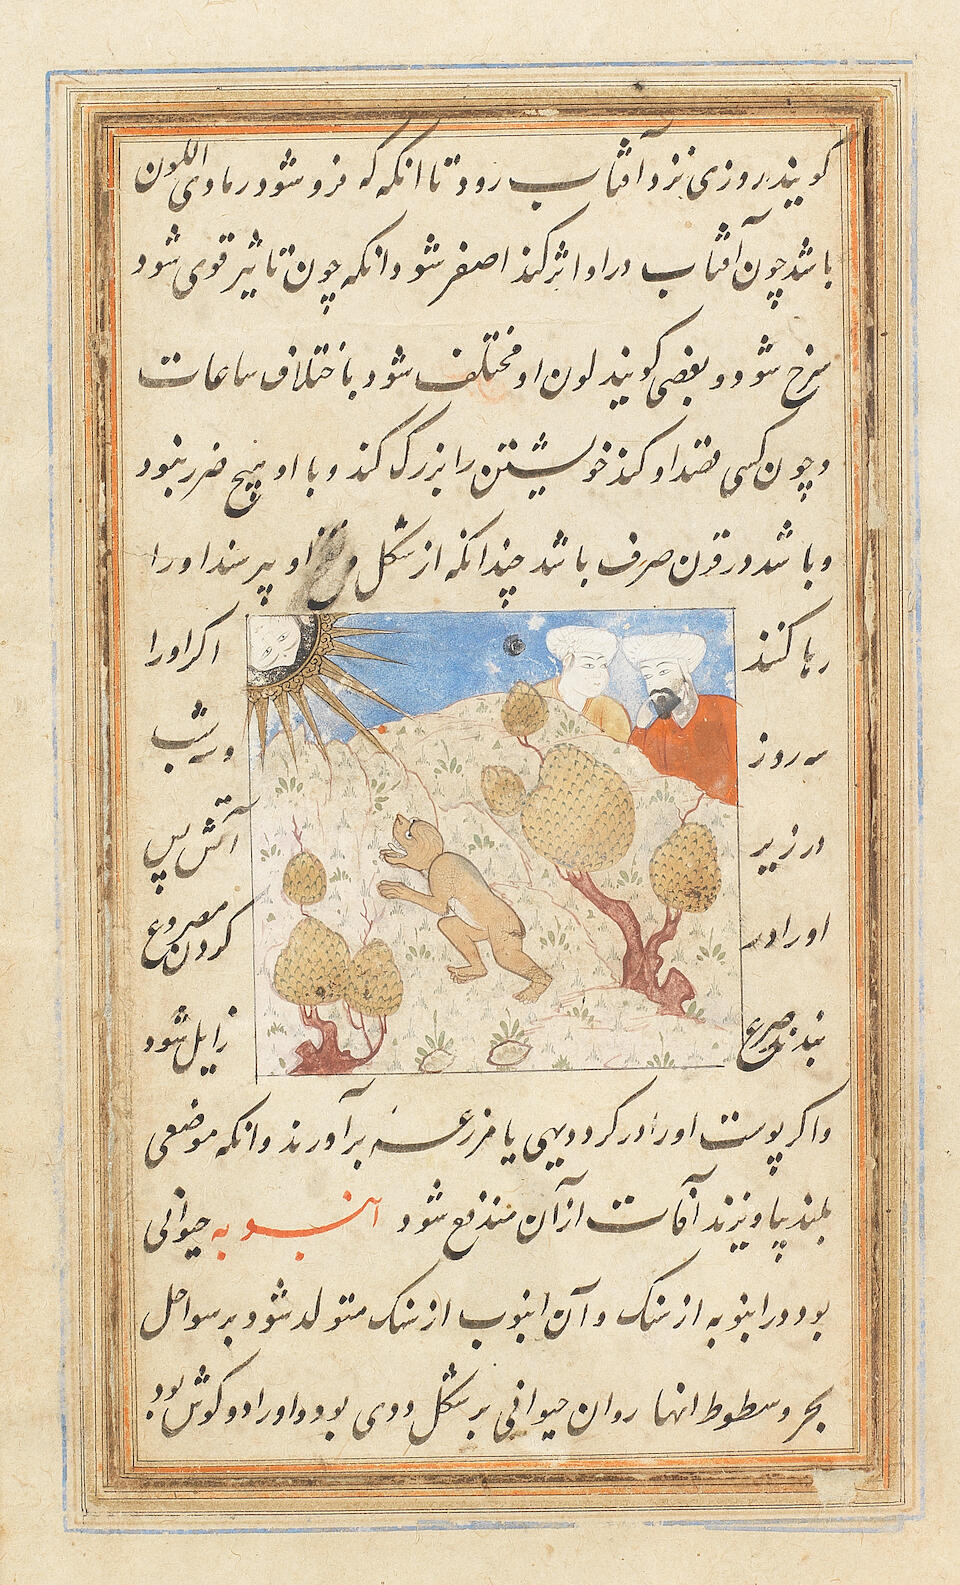 کویند روزی نزد آفتاب رود تا انکه که فرو شود رمادی اللون
باشد چون آفتاب در او اثر کند اصفر شود وانکه چون تاثیر قوی شود
سرخ شود و بعضی کویند لون او مختلف شود باختلاف ساعات
و چون کسی قصد او کند خویشتن را بزرک کند و با او هیچ ضرر نبود
و باشد در قرن صرف باشد چندانکه از شکل او بپرسند او را
رها کنند اکر او را
سه روز و سه شب
در زیر آتش پس
او را در کردن مصروع
بندند صرع زایل شود
و اکر پوست او را در کرد دیهی یا مزرعه برآورند وانکه موضعی
بلند بیاویزند آفات از آن مندفع شود انبوبه حیوانی
بود در انبوبه از سنک و آن انبوب از سنک متولد شود بر سواحل
بحر و سطوط انها روان حیوانی بر شکل دودی بود و او را دو کوش بود